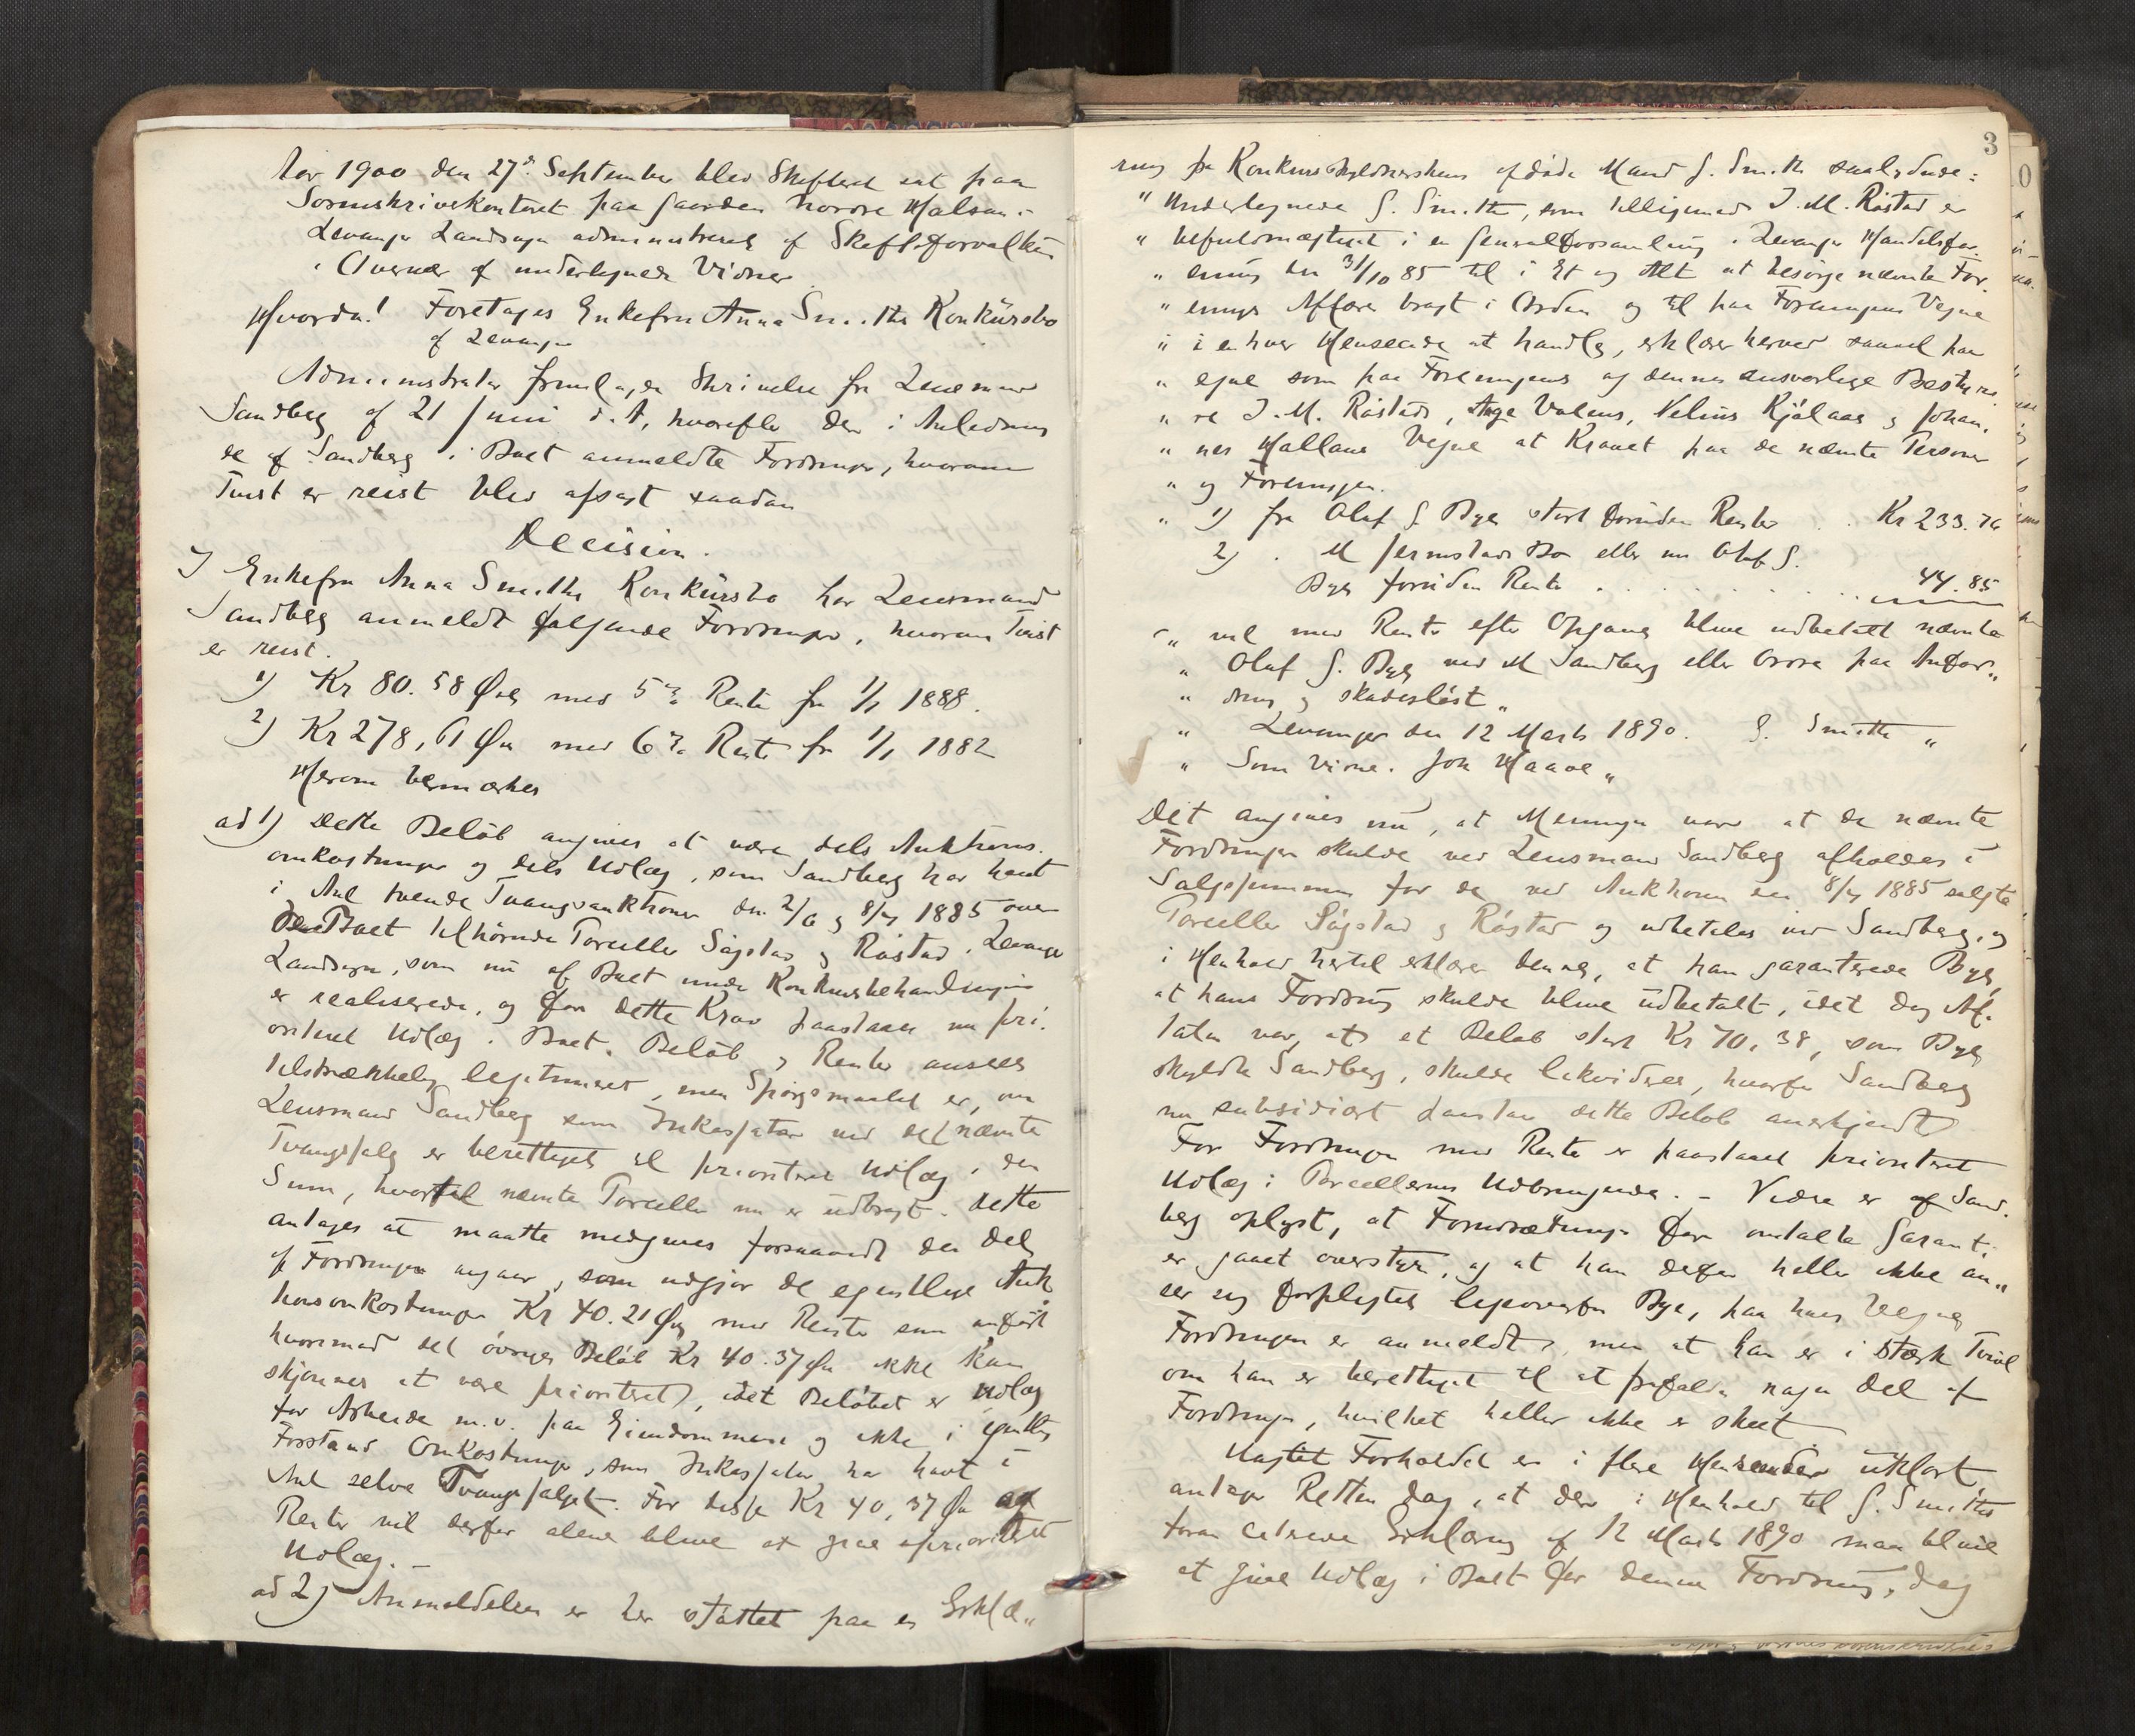 Aar 1900 den 27de September blev Skifteret sat paa
Sorenskriverkontoret paa Gaarden nordre Halsan i
Levanger Landsogn administreret af Skifteforvalteren
i Overvær af undertegnede Vidner
Hvorda! Foretages Enkefru Anna Smiths Konkursbo
af Levanger
Administrator fremlagde Skrivelse fra Lensmand
Sandberg af 21 Juni d. A, hvorefter der i Anlednin
de af Sandberg i Boet anmeldte Fordringer, hvorom
Tvist er reist blev afsagt saadan
Decision.
I Enkefru Anna Smiths Konkursbo har Lensmand
Sandberg anmeldt følgende Fordringer, hvorom Tvist
er reist.
1) Kr 80.58 Øre med 5% Rente fra 1/1 1888.
2) Kr 278,61 Øre med 6% Rente fra 1/1 1882
Herom bemærkes
ad 1) Dette Beløb angives at være dels Auktions-
omkostninger og dels Udlæg, som Sandberg har havt
i Anl tvende Tvangsauktioner den 2/6 og 8/7 1885 over
de Boet tilhørende Parceller Sagstad og Råstad i Levanger
Landsogn, som nu af Boet under Konkursbehandlingen
er realiserede, og for dette Krav paastaaes nu pri-
oriteret Udlæg i Boet. Beløb og Renter ansees
tilstrækkelig legitimeret, men Spørgsmaalet er, om
Lensmand Sandberg som Inkassator ved det nævnte
Tvangssalg er berettiget til prioriteret Udlæg i den
Sum, hvortil nævnte Parceller nu er udbragt. Dette
antages at maatte medgives forsaavidt den Del
af Fordringen angaar, som udgjør de egentlige Auk
tionsomkostninger Kr 40.21 Øre med Rente som anført
hvorimod det øvrige Beløb Kr 40.37 Øre ikke kan
skjønnes at være prioriteret, idet Beløbet er Udlæg
for Arbeide m.v. paa Eiendommene og ikke i egentlig
Forstand Omkostninger, som Inkassator har havt i
Anl selve Tvangssalget. For disse Kr 40,37 Øre og
Renter vil derfor alene blive at give uprioriteret
Udlæg. –
ad 2) Anmeldelsen er her støttet paa en Erklæ„
3
ring fra Konkursskyldnerskens afdøde Mand G. Smith saalydende:
" Undertegnede G. Smith, som tilligemed J. M. Råstad er
" befuldmægtiget i en Generalforsamling i Levanger Handelsfor-
" ening den 31/10 85 til i Et og Alt at besørge nævnte For-
" enings Affærer bragt i Orden og til paa Foreningens Vegne
" i enhver Henseende at handle, erklærer herved saavel paa
" egne som paa Foreningens og dennes ansvarlige Bestyre-
" re J. M. Råstads, Aage Valens, Nelius Kjølaas og Johan-
" nes Hallans Vegne at Kravet paa de nævnte Personer
" og Foreningen.
" 1) fra Olaf G. Bye stort foruden Renter . . Kr 233.76
2) . M Jermstads Bo eller nu Olaf G.
Bye foruden Rente . . . . . . . . 44.85
" vil med Rente efter Opgave blive udbetalt nævnte
" Olaf G. Bye ved M Sandberg eller Ordre paa Anfor„
" dring og skadesløst „
" Levanger den 12 Marts 1890. G. Smith „
" Som Vidne. Joh Haave „
Det angives nu, at Meningen var at de nævnte
Fordringer skulde ved Lensmand Sandberg afholdes i
Salgssummen for de ved Auktionen den 8/7 1885 solgte
Parceller Sagstad og Råstad og udbetales ved Sandberg, og
i Henhold hertil erklærer denne, at han garanterede Bye,
at hans Fordring skulde blive udbetalt, idet dog Af-
talen var, at et Beløb stort Kr 70,38, som Bye
skyldte Sandberg, skulde likvideres, hvorfor Sandberg
nu subsidiært paastaar dette Beløb anerkjendt
For Fordringen med Rente er paastaaet prioriteret
Udlæg i Parcellernes Udbringende. – Videre er af Sand-
berg oplyst, at Forudsætningen for omtalte Garanti
er gaaet overstyr, og at han derfor heller ikke an„
ser sig forpligtet ligeoverfor Bye, paa hvis Vegne
Fordringen er anmeldt, men at han er i stærk Tvivl
om han er berettiget til at frafalde nogen Del af
Fordringen, hvilket heller ikke er skeet
Uagtet Forholdet er i flere Henseender uklart
antager Retten dog, at der i Henhold til G. Smiths
foran citerede Erklæring af 12 Marts 1890 maa blive
at give Udlæg i Boet for denne Fordring, dog